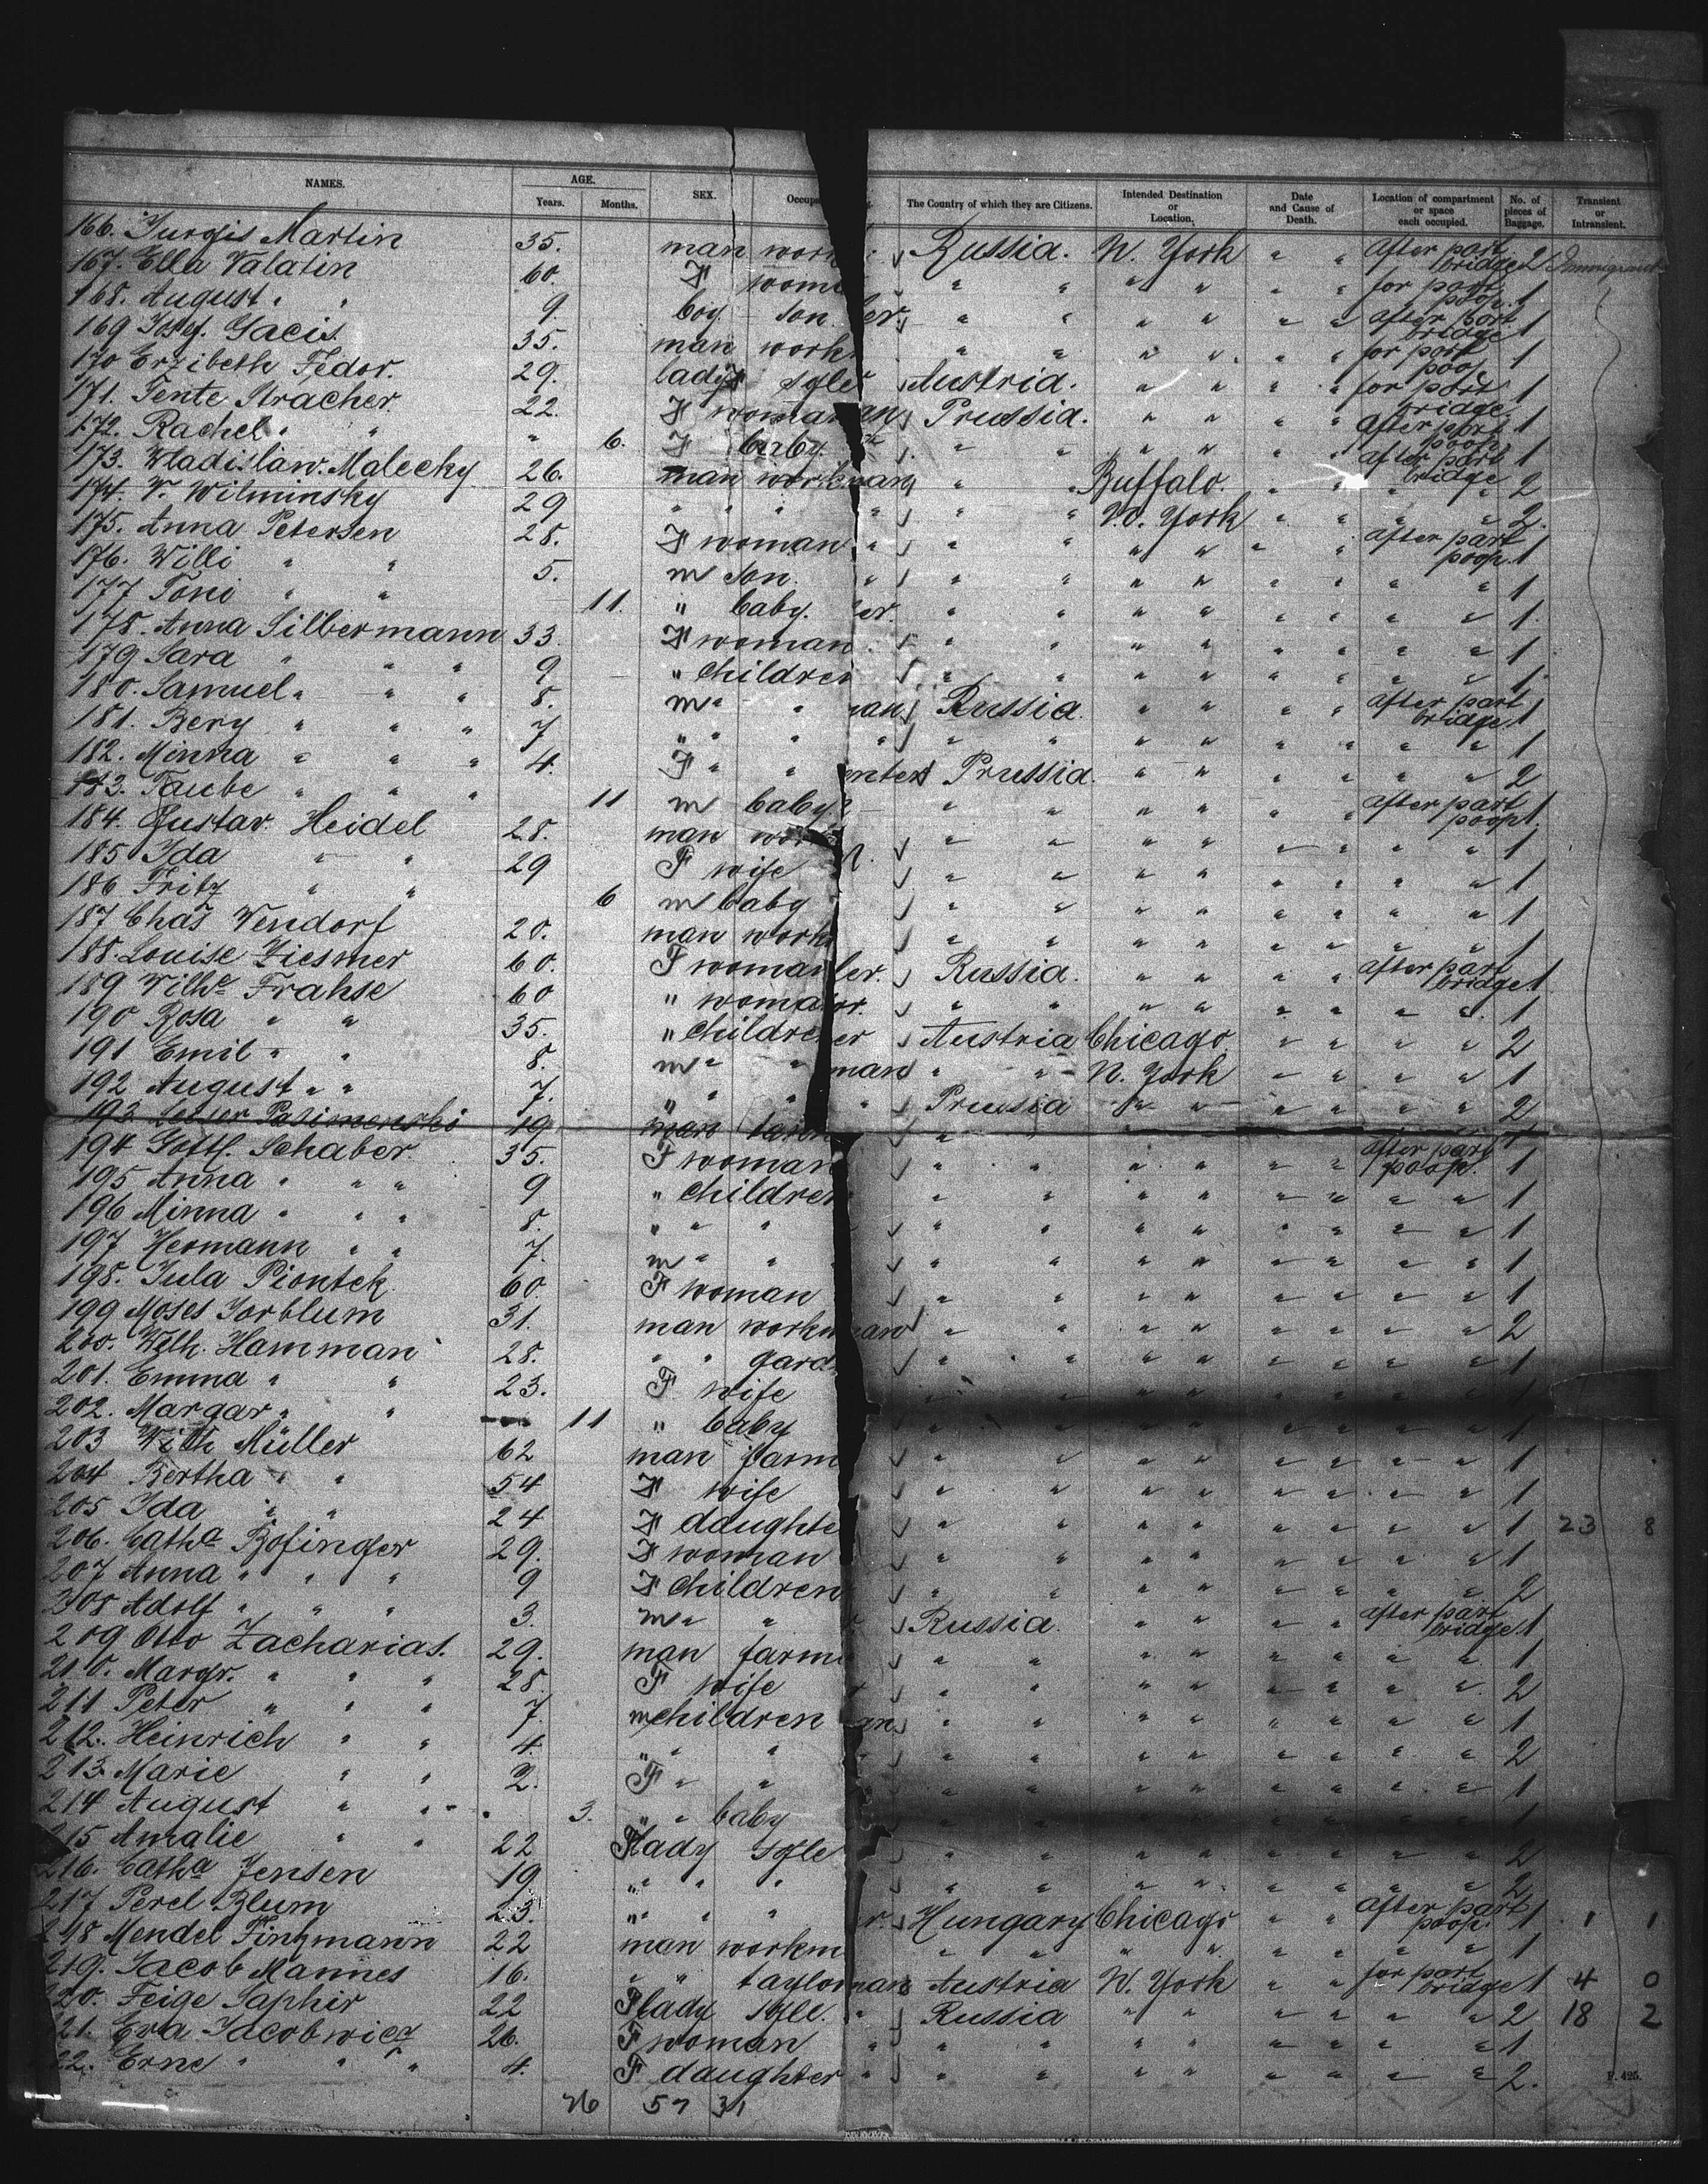 NAMES. AGE. Years. Months. SEX. Occup The Country of which they are Citizens. Intended Destination or Location, Date and Cause of Death. Location of compartment or space each occupied. No. of pieces of Baggage. Transient or Intransient.
166. Jurgis Martin 35. man work Russia. N. York " " after part bridge 2 Immigrant
167. Ella Valatin 60. F wom " " " " " " for part poop. 1
168. August " " 9 boy son er. " " " " " " after part bridge 1
169 Josef. Gacis. 35. man work " " " " " " for part poop 1
170 Erzibeth Fedor. 29. lady sgle Austria. " " " " for part bridge. 1
171. Tente Stracher. 22. F woman an Prussia. " " " " after part poop. 1
172. Rachel " " " 6. F baby " " " " " " after part bridge 1
173. Wladislaw. Malecky 26. man workman " " Buffalo. " " " " 2
174. V. Wilminsky 29 " " " " " " N. York " " " " 2.
175. Anna Petersen 28. F woman " " " " " " " after part poop. 1
176. Willi " " 5. m son. " " " " " " " " " 1
177 Toni " " 11. " baby. er. " " " " " " " " 1.
178. Anna Silbermann 33. F woman. " " " " " " " " 1
179 Sara " " " 9 " children " " " " " " " " 1.
180. Samuel " " " 8. m " " an Russia. " " " " after part bridge 1
181. Bery " " " 7 " " " " " " " " " " " " 1
182. Minna " " " 4. F " " enter Prussia. " " " " " " 2
183. Taube " " " 11 m baby " " " " " " after part poop 1.
184. Gustav. Heidel 28. man wor " " " " " " " " 1
185 Ida " " 29 F wife " " " " " " " " 1
186 Fritz " " 6 m baby " " " " " " " " 1
187 Chas Wendorf 20. man work " " " " " " " " 1
188. Louise Ziesmer 60. F woman ler. Russia. " " " " after part bridge 1.
189 Wilhe Frahse 60 " woma er. " " " " " " " " 1
190 Rosa " " 35. " childre er Austria Chicago " " " " 2
191 Emil " " 8. m " " man " " N. York " " " " 1
192 August " " 7. " " " " Prussia " " " " " " 2
193. 19 man
194 Gottf. Schaber. 35. F woman " " " " " " after part poop. 1
195 Anna " " " 9 " children " " " " " " " " 1
196 Minna " " " 8. " " " " " " " " " " " 1
197 Hermann " " 7. m " " " " " " " " " " 1
198. Jula Piontek. 60. F woman " " " " " " " " 1
199 Moses Jorblum 31. man workman " " " " " " " " 2
200. Wilh. Hamman 28. " " gard " " " " " " " " 1
201. Emma " " 23. F. wife " " " " " " " " 1
202. Margar " " 11 " baby " " " " " " " " 1
203 With Müller 62 man farm " " " " " " " " 1
204 Bertha " " 54 F wife " " " " " " " " 1
205 Ida " " 24 F daughte " " " " " " " " 1 23 8
206. Catha Bofinger 29. F woman " " " " " " " " 1
207 Anna " " " 9 F children " " " " " " " " 2
308 Adolf " " " 3. m " " Russia. " " " " after part bridge 1
209 Otto Zacharias. 29. man farm " " " " " " " " 1
210. Margr. " " " 28. F wife " " " " " " " " 2
211 Peter " " " 7. m children an " " " " " " " " 1
212. Heinrich " " 4. " " " " " " " " " " " 2
213. Marie " " 2. F " " " " " " " " " " 1
214 August " " " 3. " " baby " " " " " " " " 1
215 Amalie " " 22 F lady sgle " " " " " " " " 2
216. Catha Jensen 19 " " " " " " " " " " " 2
217 Perel Blum 23. " " " r. Hungary Chicago " " after part poop. 1 1 1
218 Mendel Finkmann 22 man workm " " " " " " " " 1
219. Jacob Mannes 16. " " taylor man Austria N. York " " for part bridge 1 4 0
220. Feige Saphir 22 F lady sgle. " Russia " " " " " " 2 18 2
221. Eva Jacobwicz 26. F woman " " " " " " " " " 1
22. Erne " " " 4. F daughter " " " " " " " " " 2.
26 57 31
P. 425.